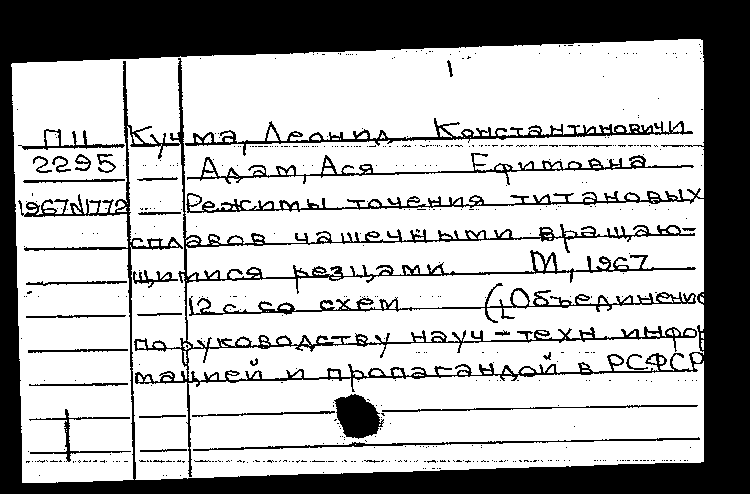 П11 Кучма, Леонид Константинович и
2295 Адам, Ася Ефимовна
1967N1772 Режимы точения титановых
сплавов чашечными вращаю=
щимися резцами. М., 1967
12 с. со схем. (Объединение
по руководству науч-техн. инфор
мацией и пропагандой в РСФСР